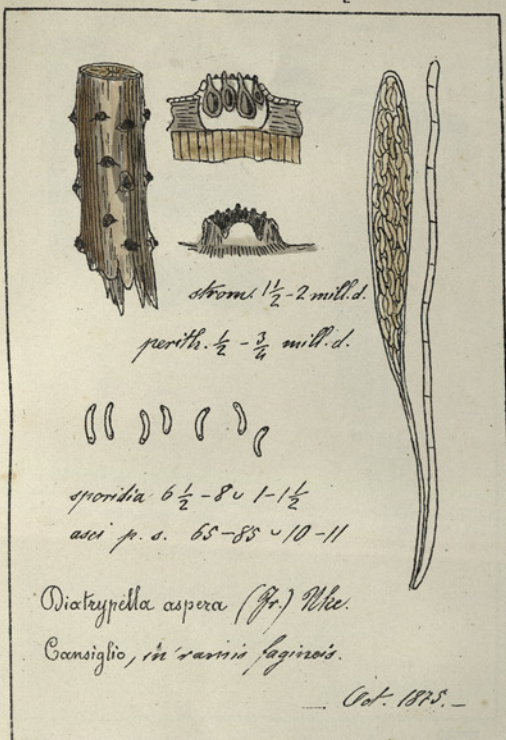 strom. 1½-2 mill. d.
perith. ½ - ¾ mill. d.
sporidia 6½-8 ᴗ 1-1½
asci p. s. 65-85 ᴗ 10-11
Diatrypella aspera (Fr.) Nke.
Cansiglio, in ramis fagineis.
Oct. 1875.